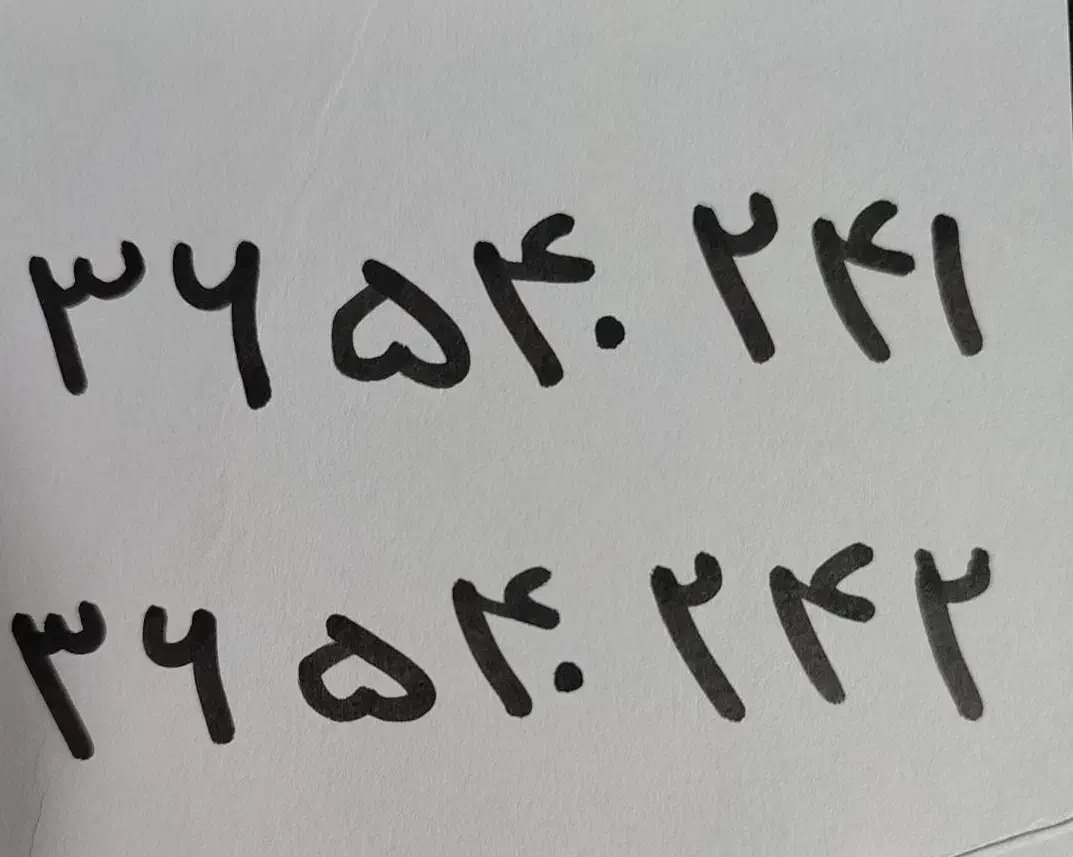 ۳۶۵۴۰۲۴۱
۳۶۵۴۰۲۴۲